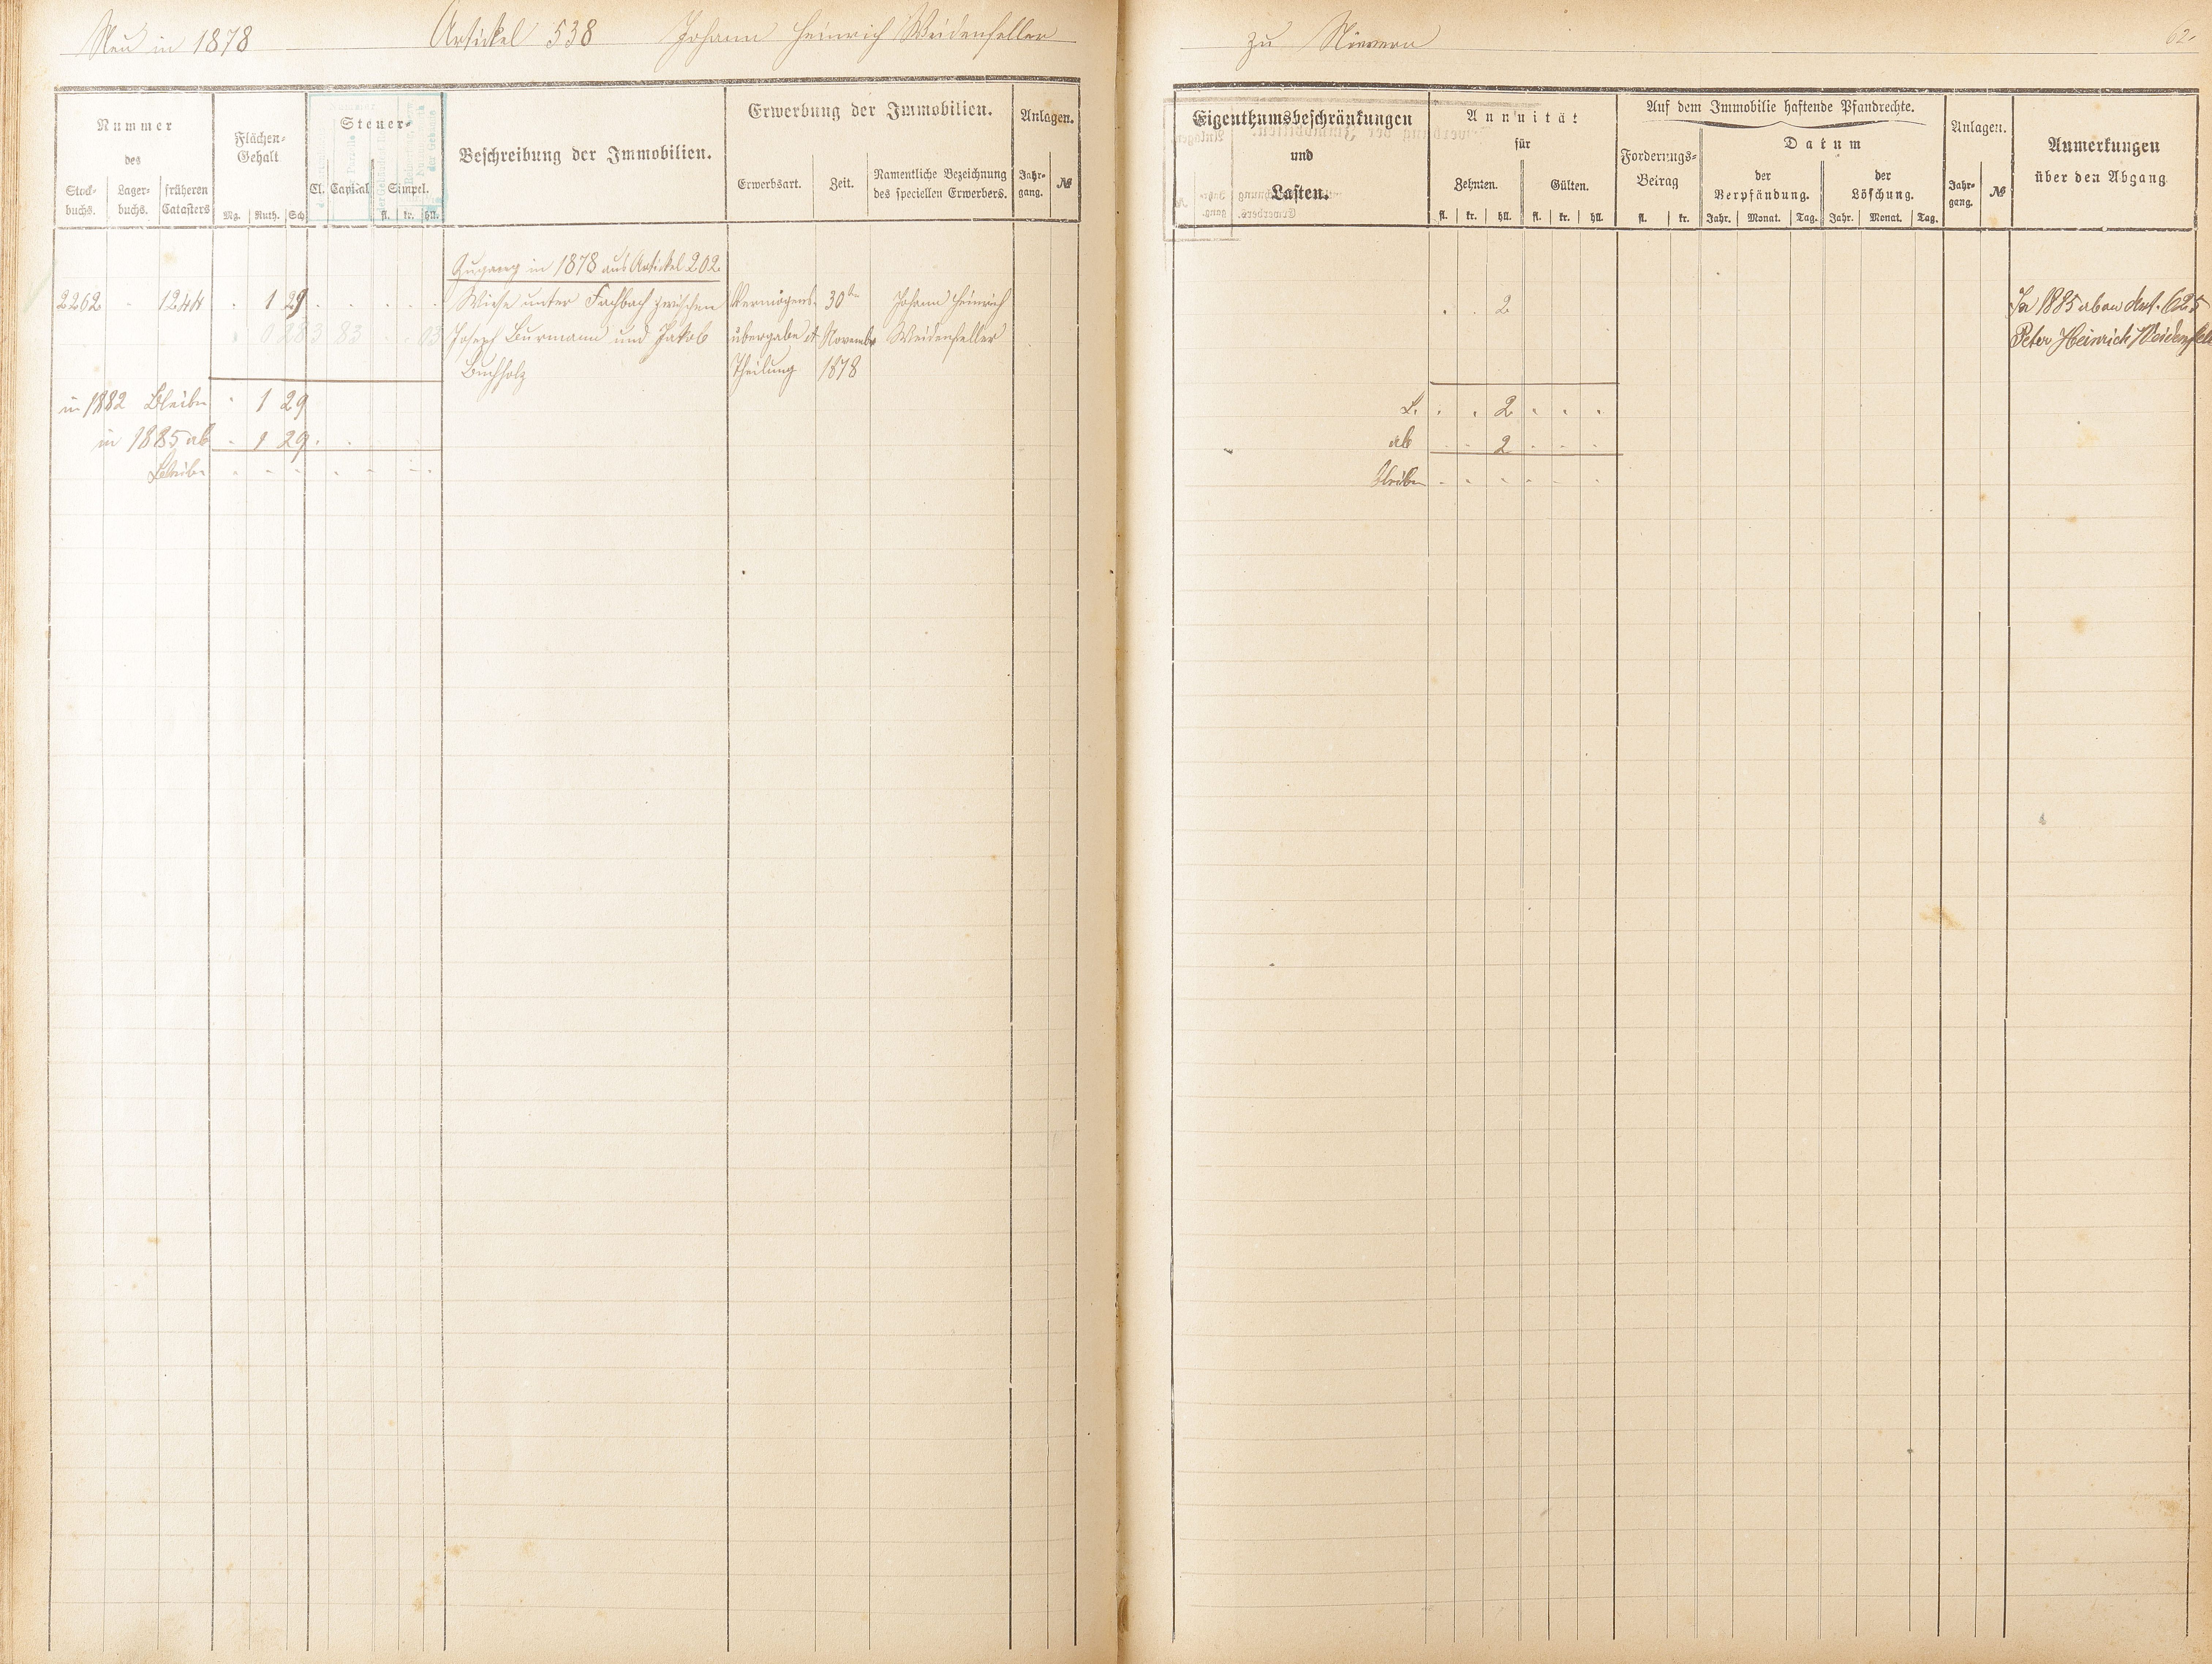 Neu in 1878 Artickel 538 Johann Heinrich Weidenfeller
Nummer
des
Stock-
buchs.
Lager-
buchs.
früheren
Catasters
Flächen-
Gehalt
Mg. Ruth. Sch.
Steuer-
Cl. Capital Simpel.
fl. kr. hll.
Beschreibung der Immobilien.
Erwerbung der Immobilien.
Erwerbsart. Zeit.
Namentliche Bezeichnung
des speciellen Erwerbers.
Anlagen.
Jahr-
gang.
№
Zugang in 1878 aus Artickel 202.
2262 - 1244 . 1 29 Wiese unter Fachbach zwischen Vermögens- 30ten Johann Heinrich
0 283 83 03 Joseph Burmann und Jakob übergabe & November Weidenfeller
Buchholz Theilung 1878
in 1882 Bleibn . 1 29
in 1885 ab . 1 29
Bleibn
zu Nievern
62
Eigenthumsbeschränkungen
und
Lasten.
Annuität
für
Zehnten. Gülten.
fl. kr. hll. fl. kr. hll.
Auf dem Immobilie haftende Pfandrechte.
Forderungs-
Betrag
fl. kr.
Datum
der
Verpfändung.
der
Löschung.
Jahr. Monat. Tag. Jahr. Monat. Tag.
Anlagen.
Jahr-
gang.
№
Anmerkungen
über den Abgang
. . 2 In 1885 ab an Art. 625
Peter Heinrich Weidenfeller
B. . . 2 . . .
ab . . 2 . . .
Bleiben